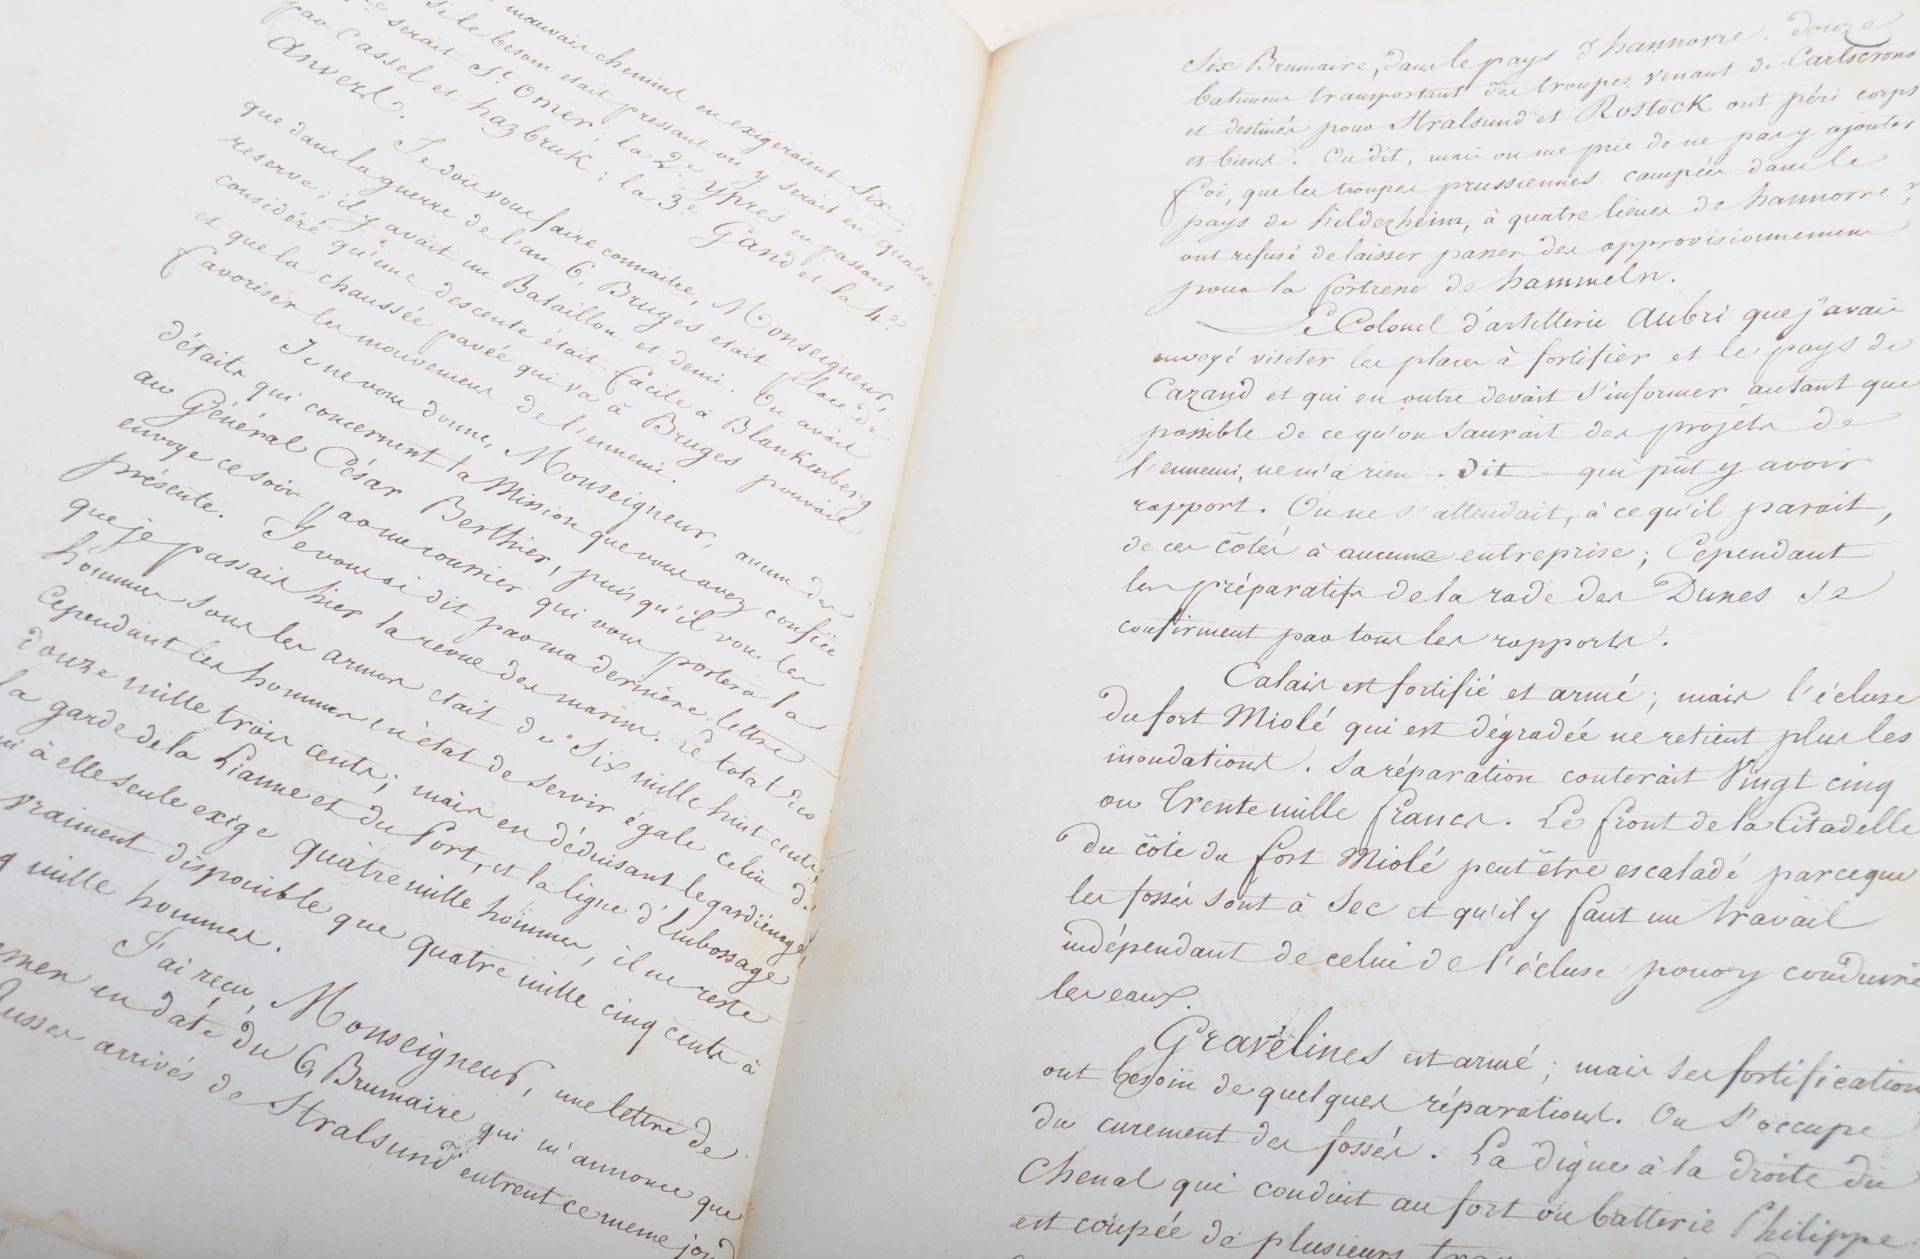 mauvais chemins en exigeraient six;
si le besoin etait pressant on y serait en quatre.
serait St. Omer; la 2e. Ypres en passant
par Cassel et hazbruk; la 3e. Gand et la 4e.
Anvers.
Je dois vous faire connaitre, Monseigneur,
que dans la guerre de l'an 6, Bruges etait place de
reserve; il y avait un Bataillon et demi. On avait
considéré qu'une descente était facile à Blankenberg
et que la chaussée pavée qui va à Bruges pouvait
favoriser les mouvemens de l'ennemi.
Je ne vous donne, Monseigneur, aucun des
détails qui concernent la Mission que vous avez confiée
au Général César Berthier, puisqu'il vous les
envoye ce soir par un courrier qui vous portera la
présente. Je vous ai dit par ma dernière lettre
que je passais hier la revue des marins. Le total des
hommes sous les armes etait de Six mille huit cents;
Cependant les hommes en état de servir égale celui de
douze mille trois cents; mais en déduisant le gardiénage,
la garde de la Lianne et du Port, et la ligne d'Embossage
qui à elle seule exige quatre mille hommes, il ne reste
vraiment disponible que quatre mille cinq cents à
mille hommes.
J'ai reçu, Monseigneur, une lettre de
en date du 6 Brumaire qui m'annonce que
Russes arrivés de Stralsund entrent ce meme jour
Six Brumaire, dans le pays d'hannovre. Douze
batimens transportant des troupes venant de Carlscrona
et destinés pour Stralsund et Rostock ont péri corps
et biens. On dit, mais on me prie de ne pas y ajouter
foi, que les troupes prussiennes campées dans le
pays de hilderheim, à quatre lieues de hannovre,
ont refusé de laisser passer des approvisionnemens
pour la fortresse de hammeln.
Le Colonel d'artillerie Aubri que j'avais
envoyé visiter les places à fortifier et le pays de
Cazand et qui en outre devait s'informer autant que
possible de ce qu'on saurait des projets de
l'ennemi, ne m'a rien dit qui pût y avoir
rapport. On ne s'attendait, à ce qu'il parait,
de ces côtés à aucune entreprise; Cependant
les préparatifs de la rade des Dunes se
confirment par tous les rapports.
Calais est fortifié et armé; mais l'écluse
du fort Miolé qui est dégradée ne retient plus les
inondations. Sa réparation couterait Vingt cinq
ou Trente mille francs. Le front de la Citadelle
du côté du fort Miolé peut être escaladé parceque
les fossés sont à sec et qu'il y faut un travail
indépendant de celui de l'écluse pour y conduire
les eaux.
Gravelines est armé; mais ses fortifications
ont besoin de quelques réparations. On s'occupe
du curement des fossés. La digue à la droite du
Chenal qui conduit au fort ou batterie Philippe
est coupée de plusieurs